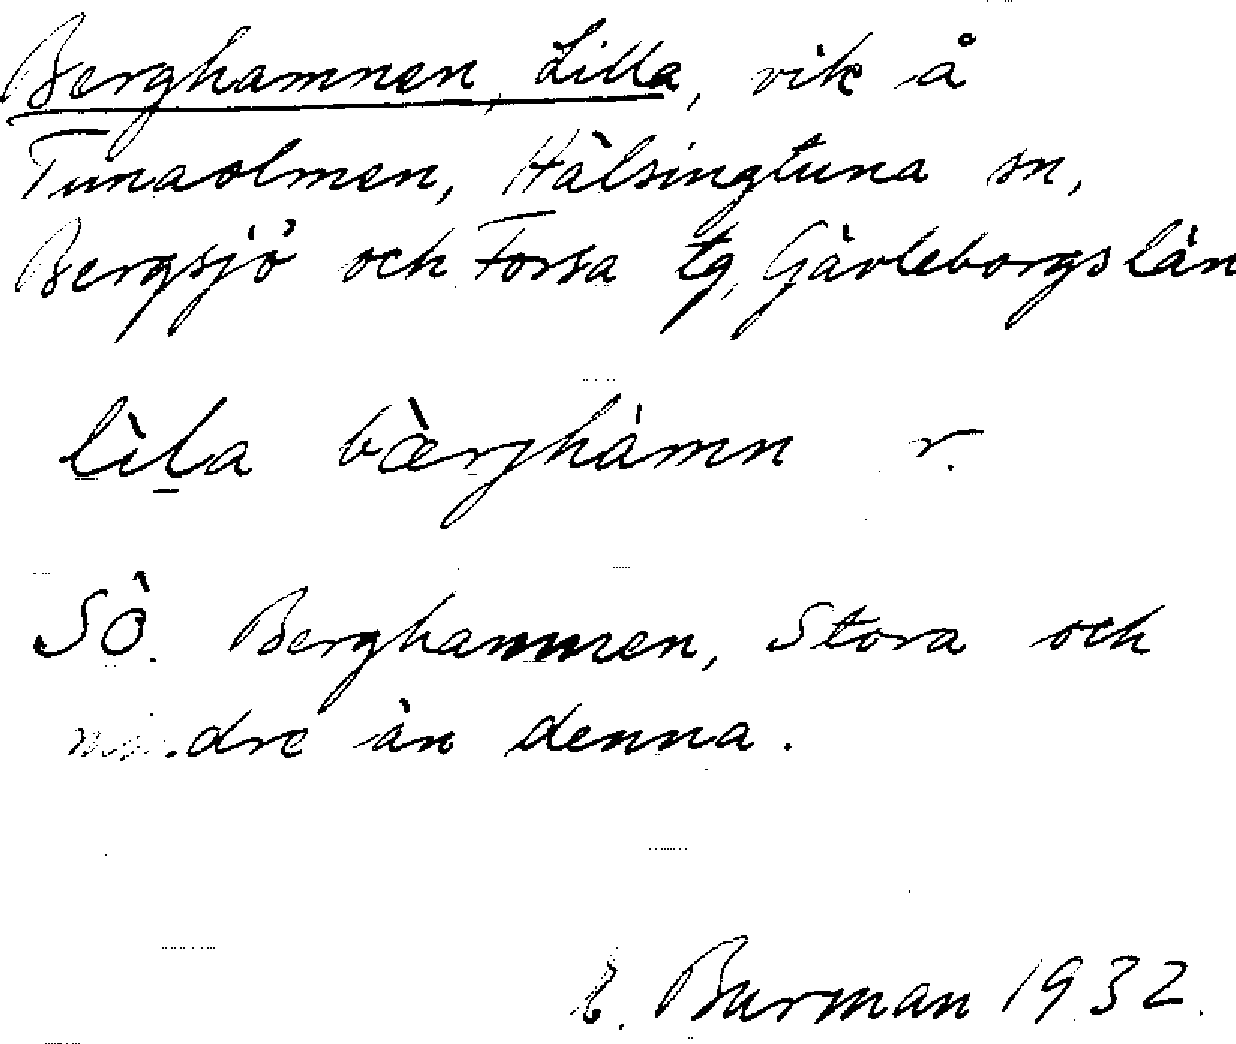 Berghamnen, Lilla, vik å
Tunaolmen, Hälsingtuna sn,
Bergsjö och Forsa tg, Gävleborgs län
lìla bæ̀rghámn r.
SÖ. Berghamnen, Stora och
mindre än denna.
E. Burman 1932.